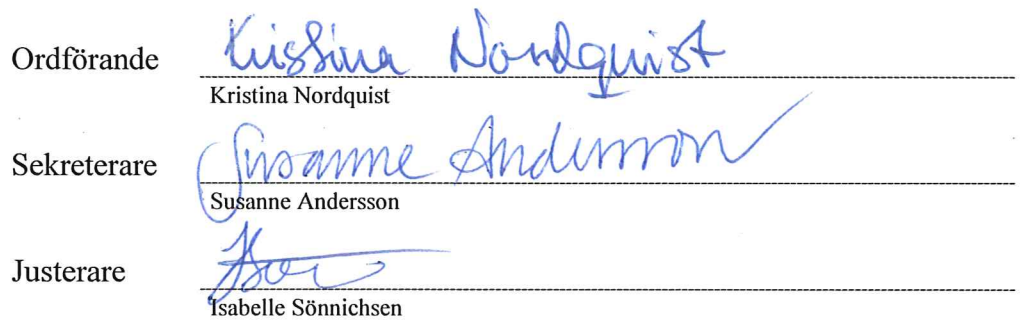 Ordförande Kristina Nordquist
Kristina Nordquist
Sekreterare Susanne Andersson
Susanne Andersson
Justerare
Isabelle Sönnichsen